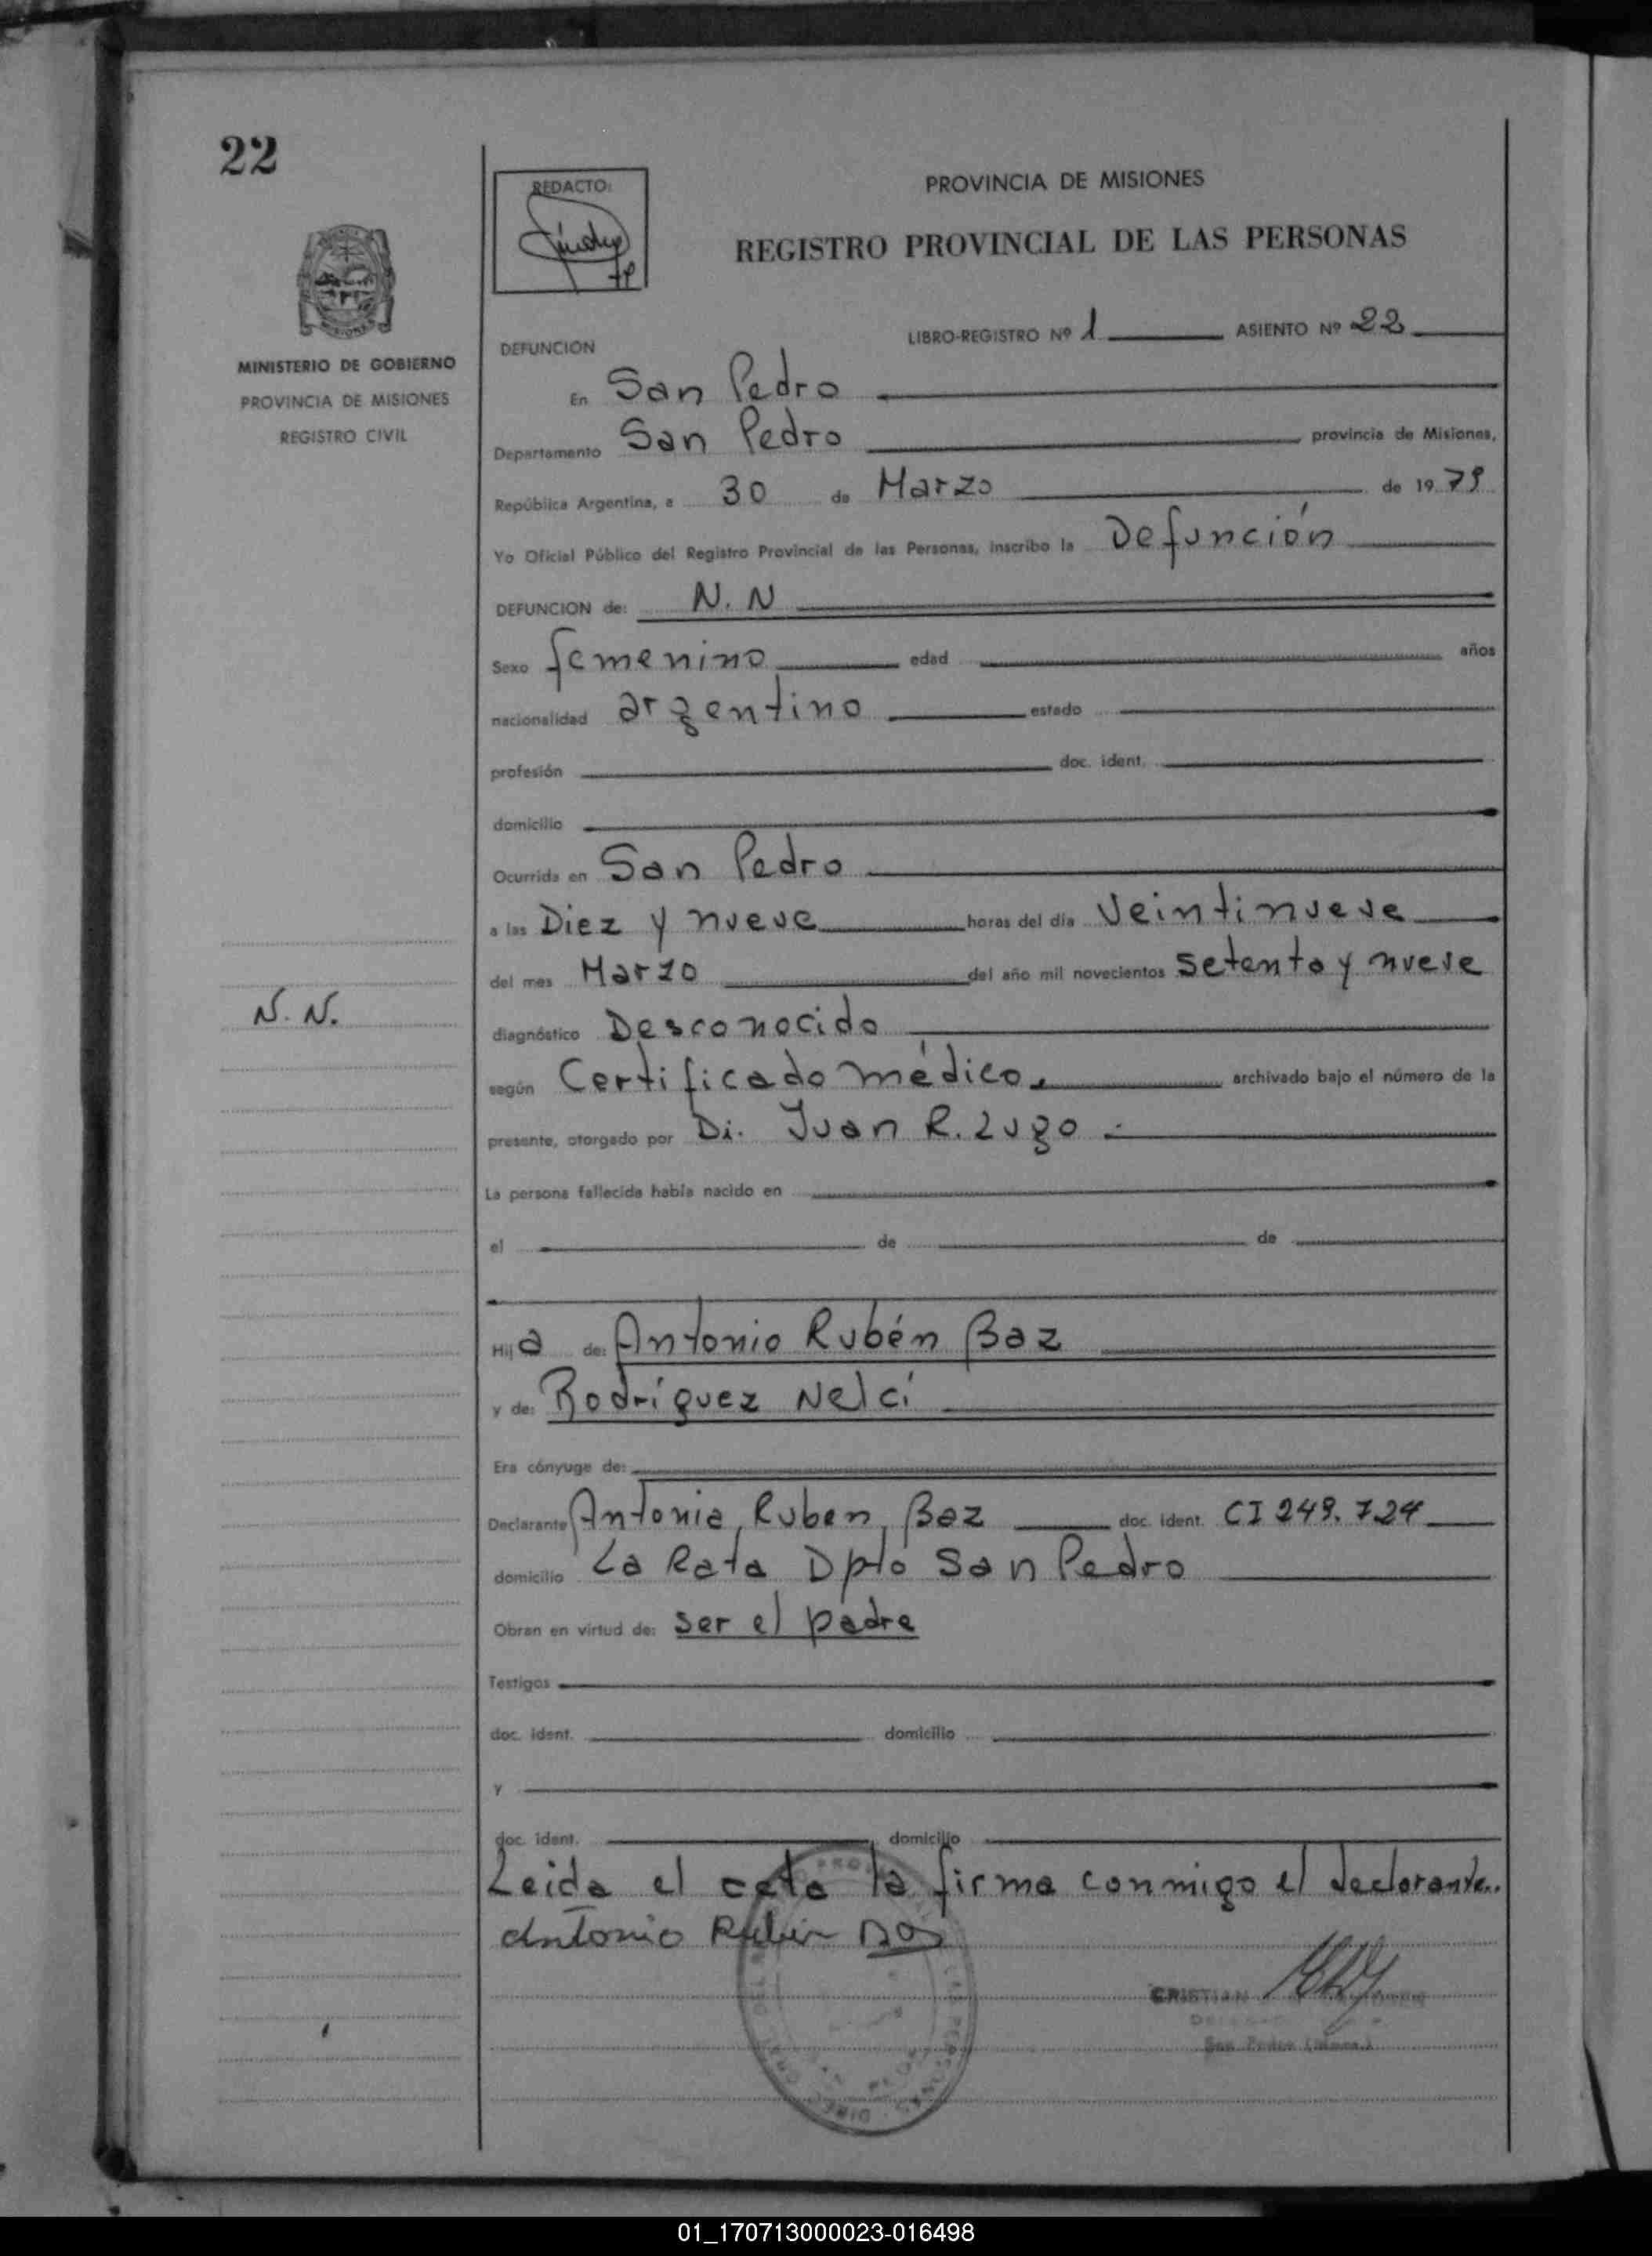 22
REDACTO:
PROVINCIA DE MISIONES
REGISTRO PROVINCIAL DE LAS PERSONAS
MISIONES
MINISTERIO DE GOBIERNO
PROVINCIA DE MISIONES
REGISTRO CIVIL
LIBRO-REGISTRO Nº 1 ASIENTO Nº 22
DEFUNCION
En San Pedro
Departamento San Pedro provincia de Misiones,
República Argentina, a 30 de Marzo de 1979
Yo Oficial Público del Registro Provincial de las Personas, inscribo la Defunción
DEFUNCION de: N. N
Sexo femenino edad años
nacionalidad argentino estado
profesión doc. ident.
domicilio
Ocurrida en San Pedro
a las Diez y nueve horas del día Veintinueve
del mes Marzo del año mil novecientos setenta y nueve
N. N.
diagnóstico Desconocido
según Certificado médico. archivado bajo el número de la
presente, otorgado por Di. Juan R. Lugo .-
La persona fallecida había nacido en
el de de
Hija de: Antonio Rubén Baz
y de: Rodríguez Nelcí
Era cónyuge de:
Declarante Antonio, Ruben, Baz doc. ident. CI 249.724
domicilio La Rata Dpto San Pedro
Obran en virtud de: ser el padre
Testigos
doc. ident. domicilio
y
doc. ident. domicilio
Leida el cata la firma conmigo el declarante..
Antonio Rubin
CRISTIAN
San Pedro (Mnes.)
01_170713000023-016498